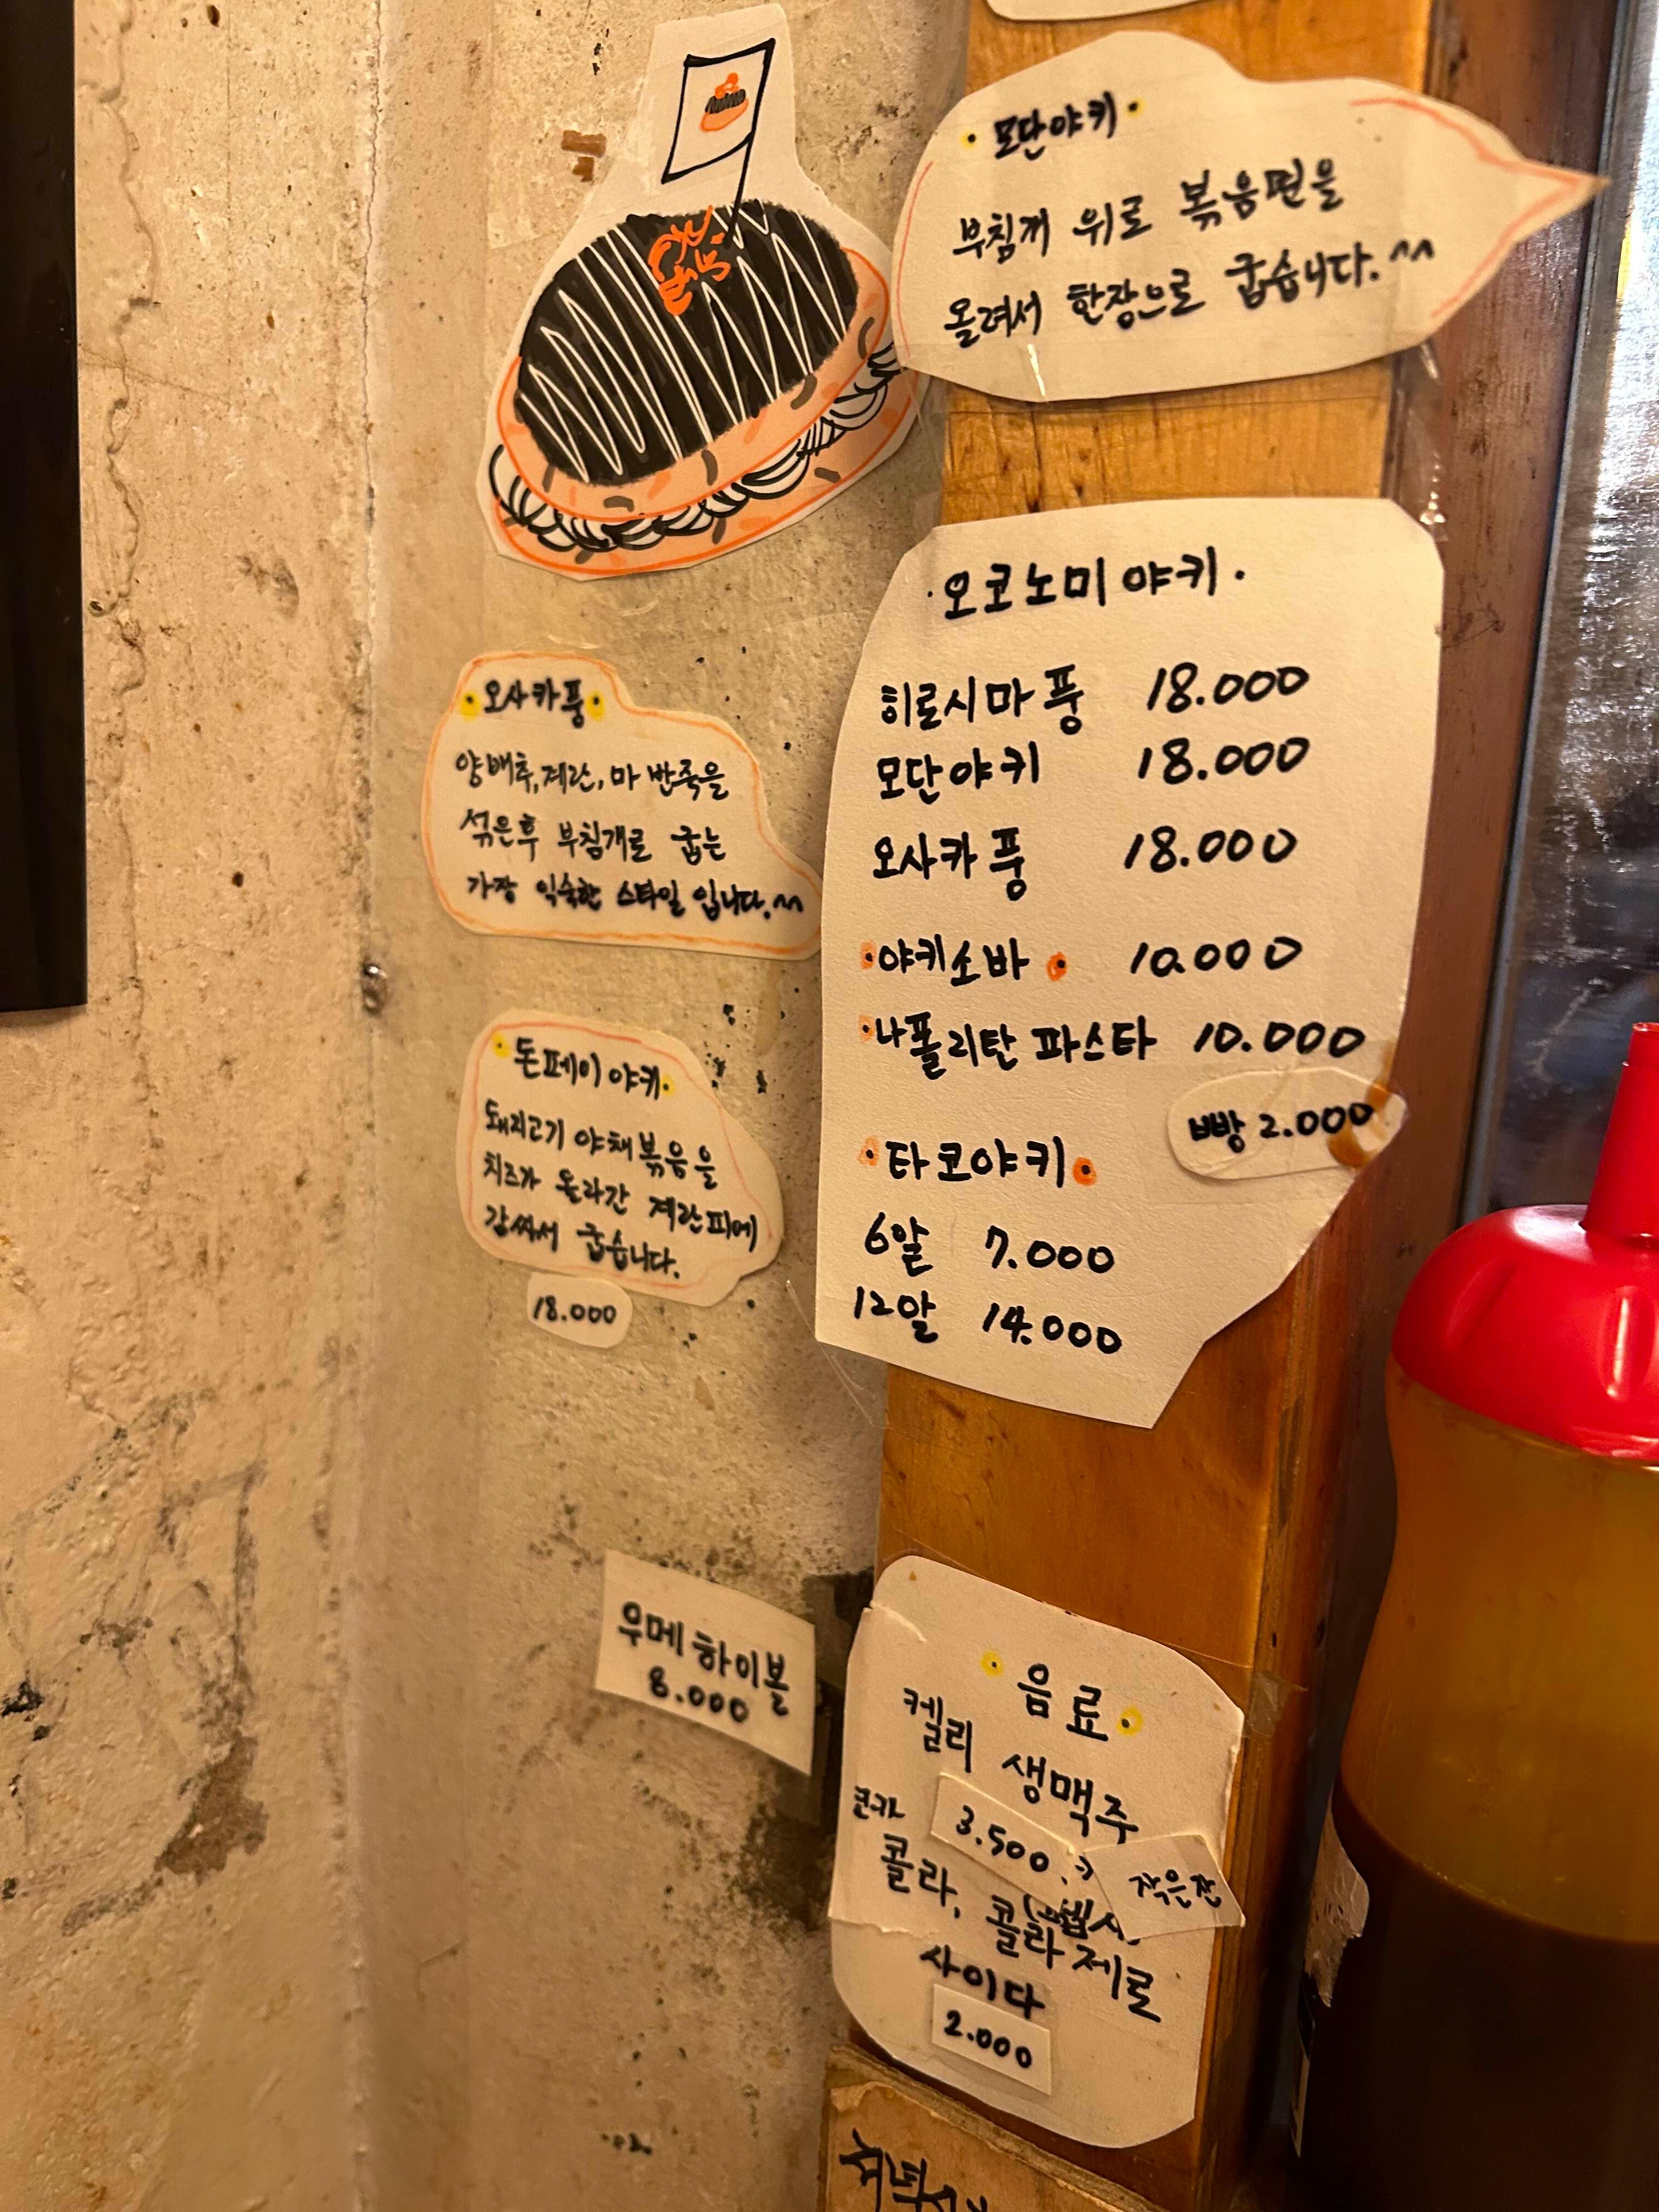 모단야키
부침개 위로 볶음면을
올려서 한장으로 굽습니다.^^
오코노미야키
히로시마풍 18.000
모단야키 18.000
오사카풍 18.000
야키소바 10.000
나폴리탄 파스타 10.000
빵 2.000
타코야키
6알 7.000
12알 14.000
오사카풍
양배추,계란,마 반죽을
섞은후 부침개로 굽는
가장 익숙한 스타일 입니다.^^
돈페이야키
돼지고기 야채볶음을
치즈가 올라간 계란피에
감싸서 굽습니다.
18.000
우메하이볼
8.000
음료
켈리 생맥주
3.500 :)
작은잔
코카
콜라, 콜라제로
사이다
2.000